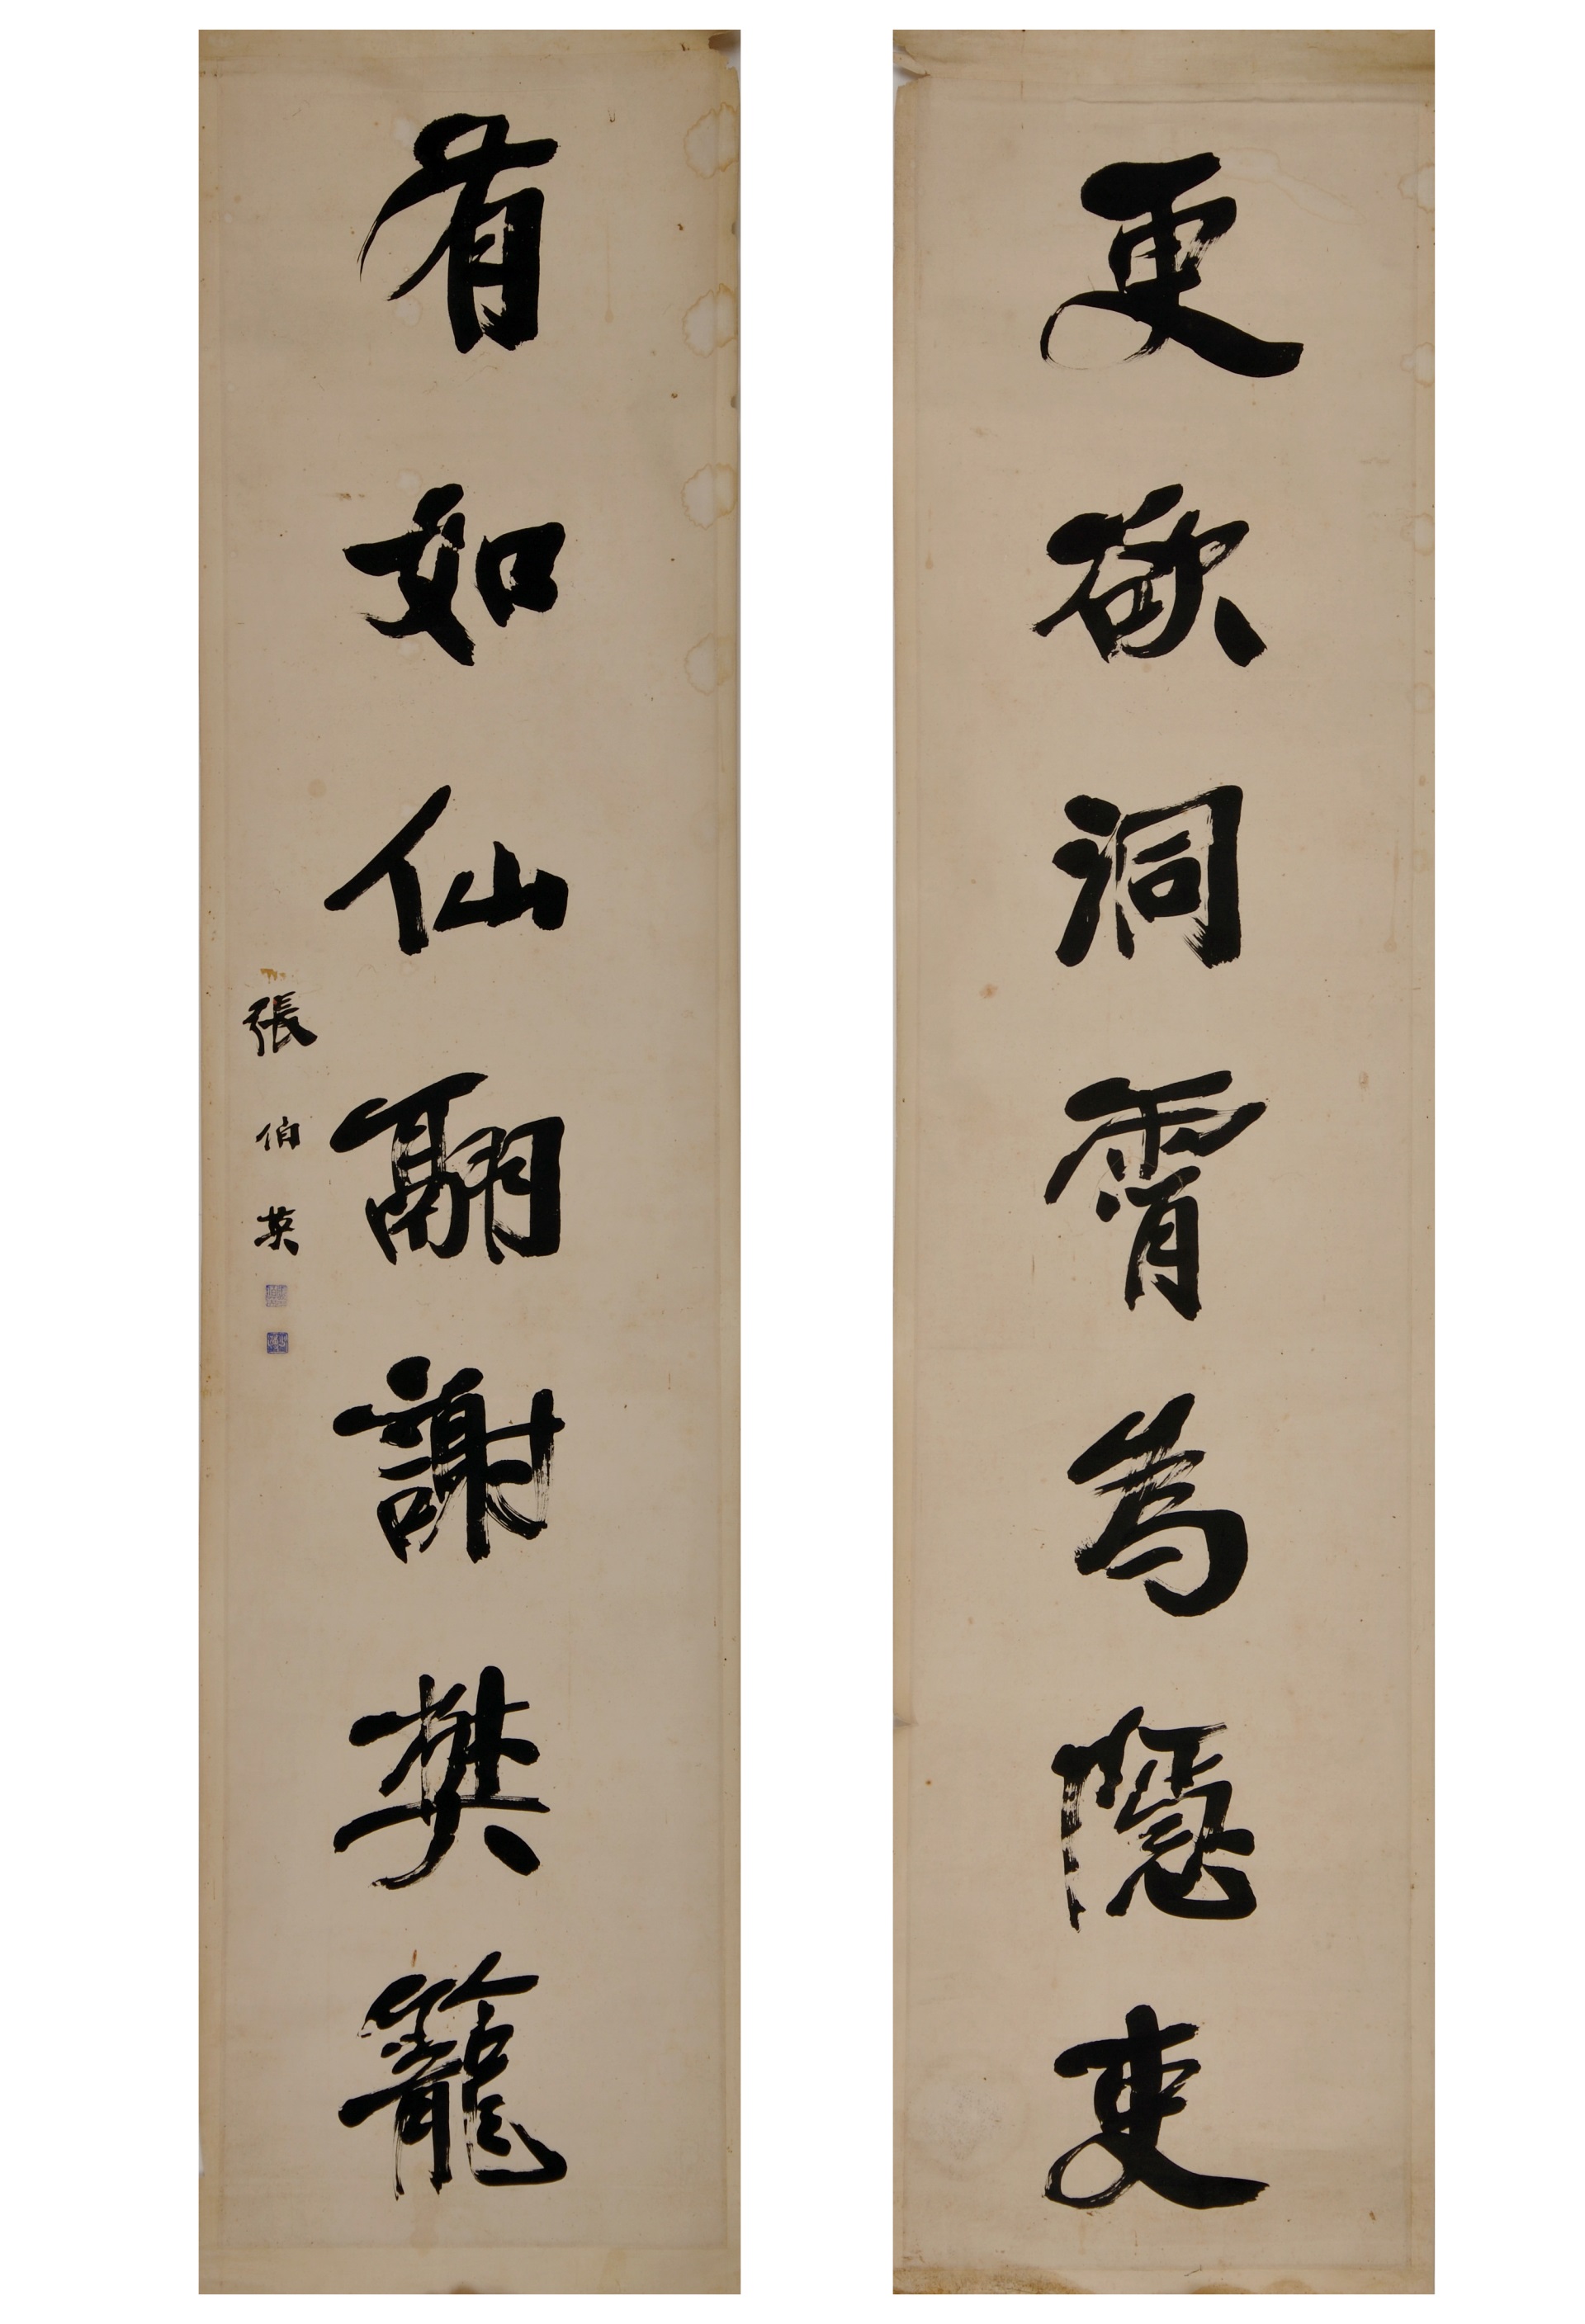 更欲洞霄為隱吏
有如仙翮謝樊籠
張伯英